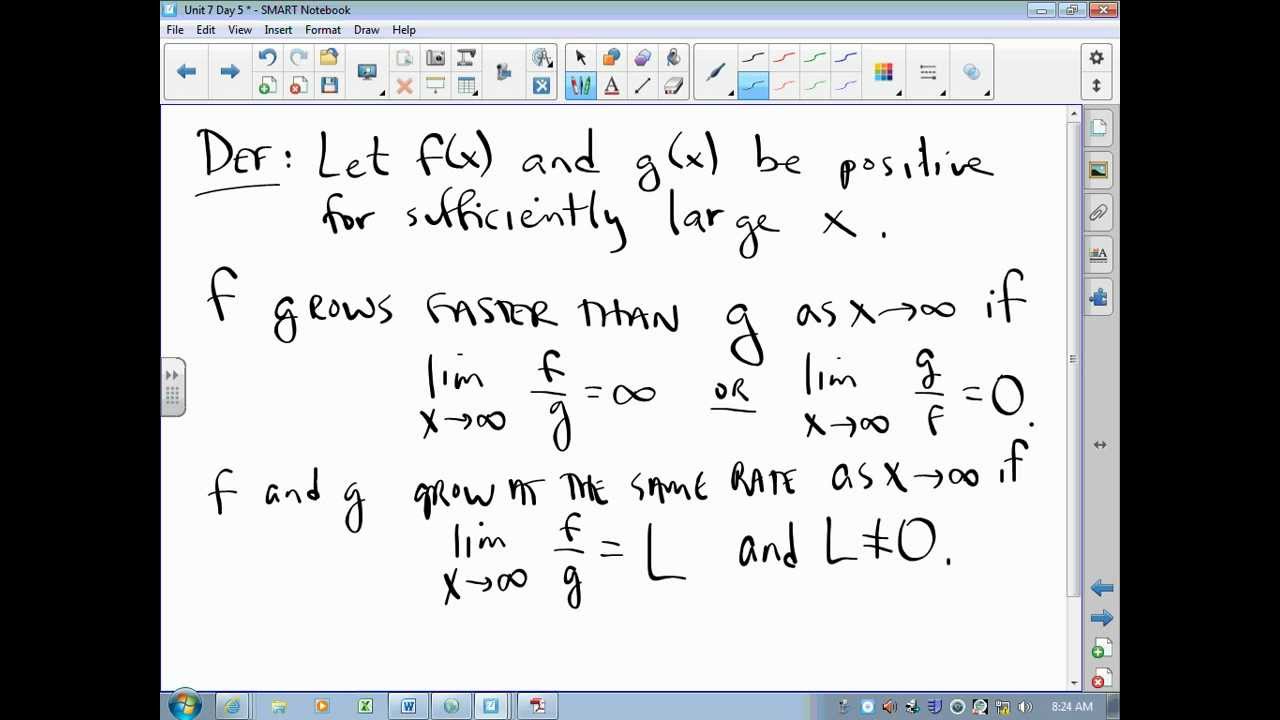 Unit 7 Day 5 * - SMART Notebook
File Edit View Insert Format Draw Help
DEF: Let f(x) and g(x) be positive
for sufficiently large x.
f GROWS FASTER THAN g as x→∞ if
lim x→∞ f/g = ∞ OR lim x→∞ g/f = 0.
f and g GROW AT THE SAME RATE as x→∞ if
lim x→∞ f/g = L and L≠0.
8:24 AM